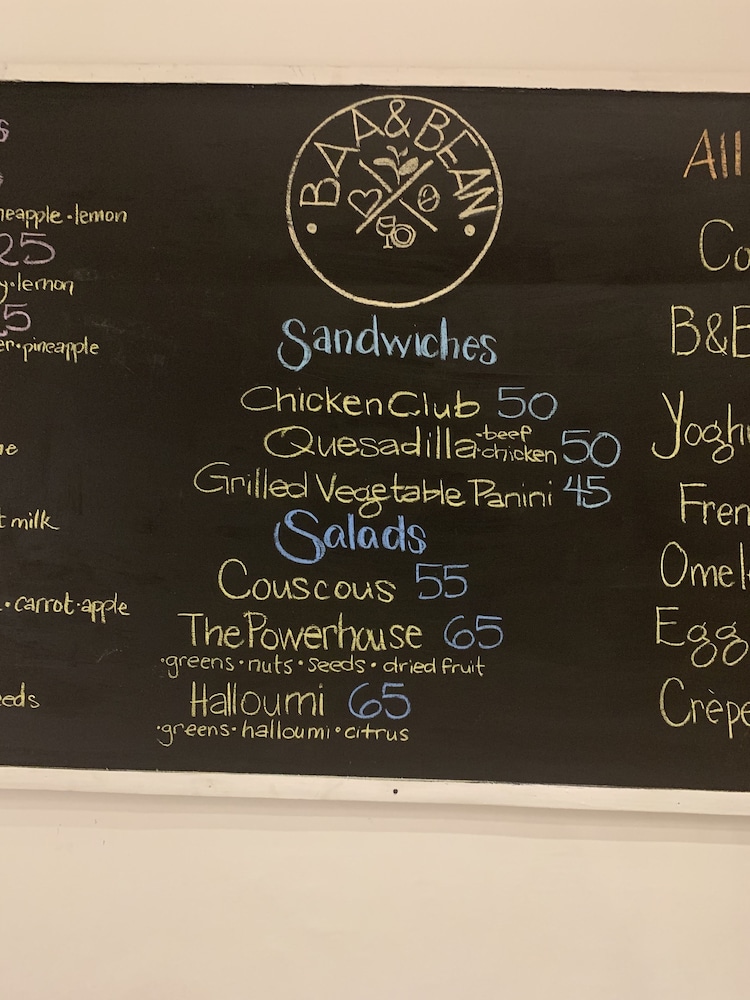 lemon
25
lemon
pineapple
milk
carrot·apple
BAA&BEAN
Sandwiches
Chicken Club 50
Quesadilla ·beef ·chicken 50
Grilled Vegetable Panini 45
Salads
Couscous 55
The Powerhouse 65
·greens·nuts·seeds·dried fruit
Halloumi 65
·greens·halloumi·citrus
All